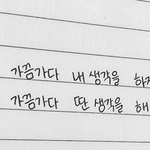 가끔가다 내 생각을 하지
가끔가다 딴 생각을 해